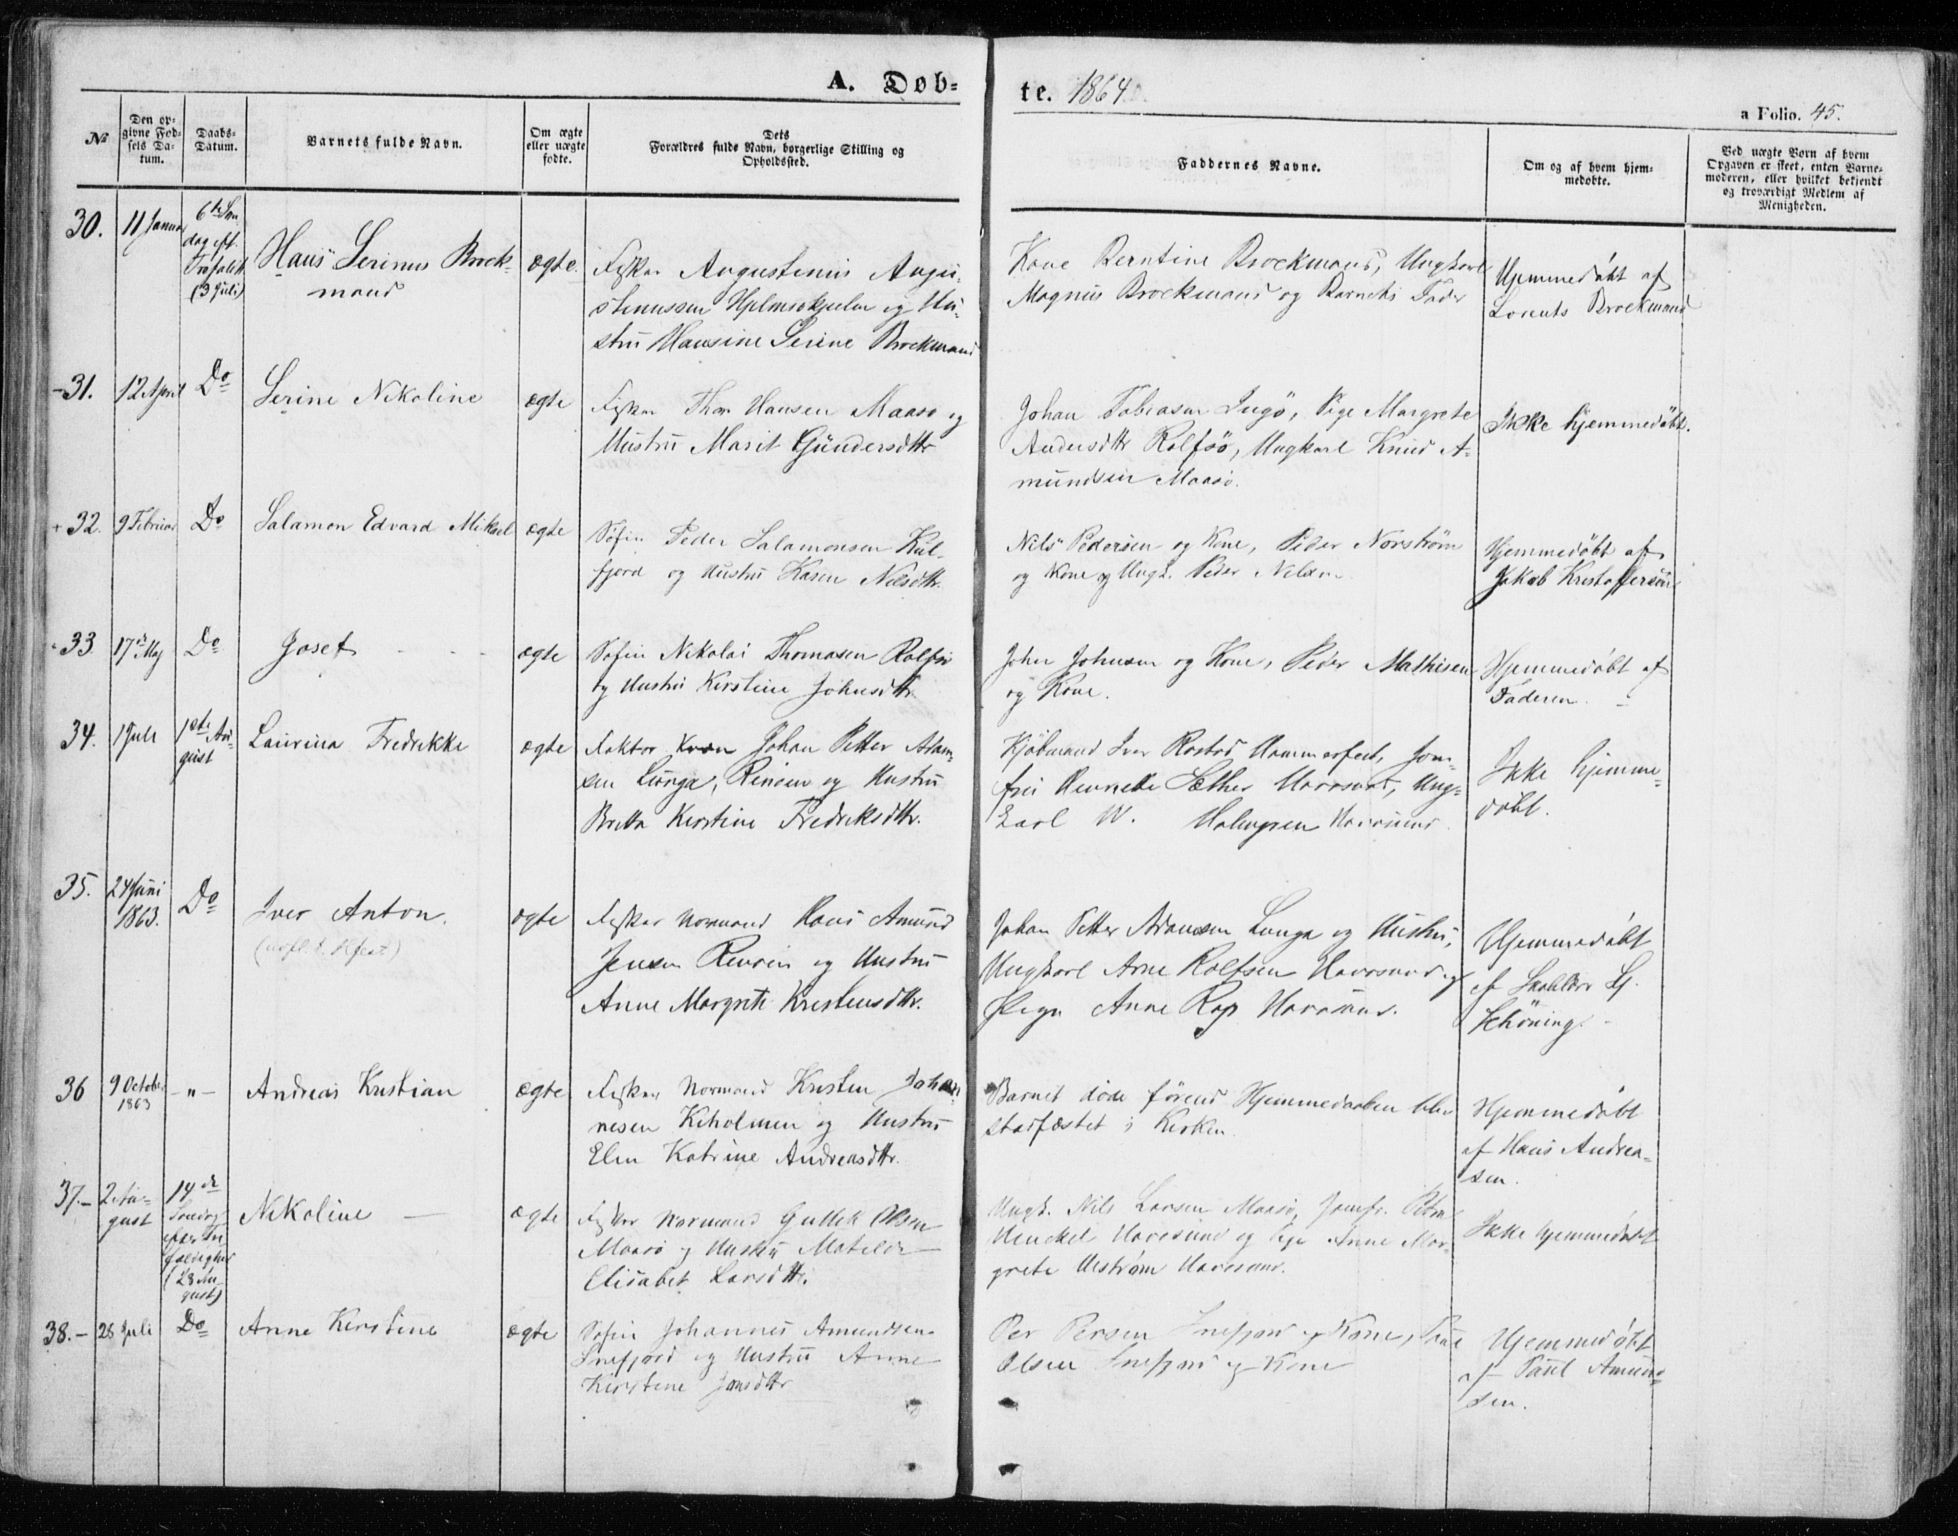 A. Døb-
te. 1864.
a Folio. 45.
No
Den op-
givne Fød-
sels Da-
tum.
Daabs-
Datum.
Barnets fulde Navn.
Om ægte
eller uægte
fødte.
Dets
Forældres fulde Navn, borgerlige Stilling og
Opholdssted.
Faddernes Navne.
Om og af hvem hjem-
medøbte.
Ved uægte Børn af hvem
Opgaven er skeet, enten Barne-
moderen, eller hvilket bekjendt
og troværdigt Medlem af
Menigheden.
30.
11 Januar
6te Søn
dag eft.
Trefoldt.
(3 Juli)
Hans Serinus Brock-
mand
ægte.
Fisker Augustinus Augu-
stinussen Hjelmsøkjeilen og Hu-
stru Hansine Serine Brockmand
Kone Berntine Brockmand, Ungkarl
Magnus Brockmand og Barnets Fader
Hjemmedøbt af
Lorents Brockmand
31.
12 April
Do
Serine Nikoline
ægte
Fisker Thor Hansen Maasø og
Hustru Marit Gundersdtr
Johan Tobiasen Ingø, Pige Margrete
Andersdtr Rolfsø, Ungkarl Knud A-
mundsen Maasø.
Ikke hjemmedøbt.
+ 32.
9 Februar
Do
Salamon Edvard Mikael
ægte
Søfin Peder Salamonsen Kul-
fjord og Hustru Karen Nilsdtr.
Nils Pedersen og Kone, Peder Norstrøm
og Kone og Ungk. Peder Nilsen
Hjemmedøbt af
Jakob Kristoffersen
33
17de Maj
Do
Josef
ægte
Søfin Nikolai Thomasen Rolfsø
og Hustru Kirstine Johnsdtr.
John Johnsen og Kone, Peder Mathisen
og Kone.
Hjemmedøbt af
Faderen.
34.
1 Juli
1ste Au-
gust
Laurina Fredrikke
ægte
Faktor Kvæn Johan Petter Adam-
sen Lunga, Renøen og Hustru
Britta Kirstine Fredriksdtr.
Kjøbmand Iver Rostad Hammerfest, Jom-
fru Hennette Sæther Havøsund, Ung-
Carl W. Holmgren Havøsund.
Ikke hjemme-
døbt.
35.
24 Juni
1863.
Do
Iver Anton.
ægte
Fisker Normand Hans Amund
Jensen Renøen og Hustru
Anne Margrete Kristensdtr.
Johan Petter Adamsen Lunga og Hustru,
Ungkarl Arne Rolfsen Havøsund og
Pige Anne Rap Havøsund.
Hjemmedøbt
af Skolelærer Lj.
Schöning.
36
9 October
1863
- " -
Andreas Kristian
ægte
Fisker Normand Kristen Johan-
nesen Keholmen og Hustru
Elen Katrine Andreasdtr.
Barnet døde førend Hjemmedaaben blev
stadfæstet i Kirken.
Hjemmedøbt
af Hans Andrea-
sen.
37.-
2 Au-
gust
14de
Søndag
efter Tre
foldighed
(28 Au-
gust)
Nikoline
ægte
Fisker Normand Gullik Olsen
Maasø og Hustru Matilde
Elisabet Larsdtr.
Ungk. Nils Larsen Maasø, Jomfr. Petra
Henckel Havøsund og Pige Anne Mar-
grete Ulstrøm Havøsund.
Ikke hjemmedøbt
38.-
28 Juli
Do
Anne Kirstine
ægte
Søfin Johannes Amundsen
Snefjord og Hustru Anne
Kirstine Jonsdtr
Per Persen Snefjord og Kone, Paul
Olsen Snefjord og Kone
Hjemmedøbt
af Paul Amund-
sen.